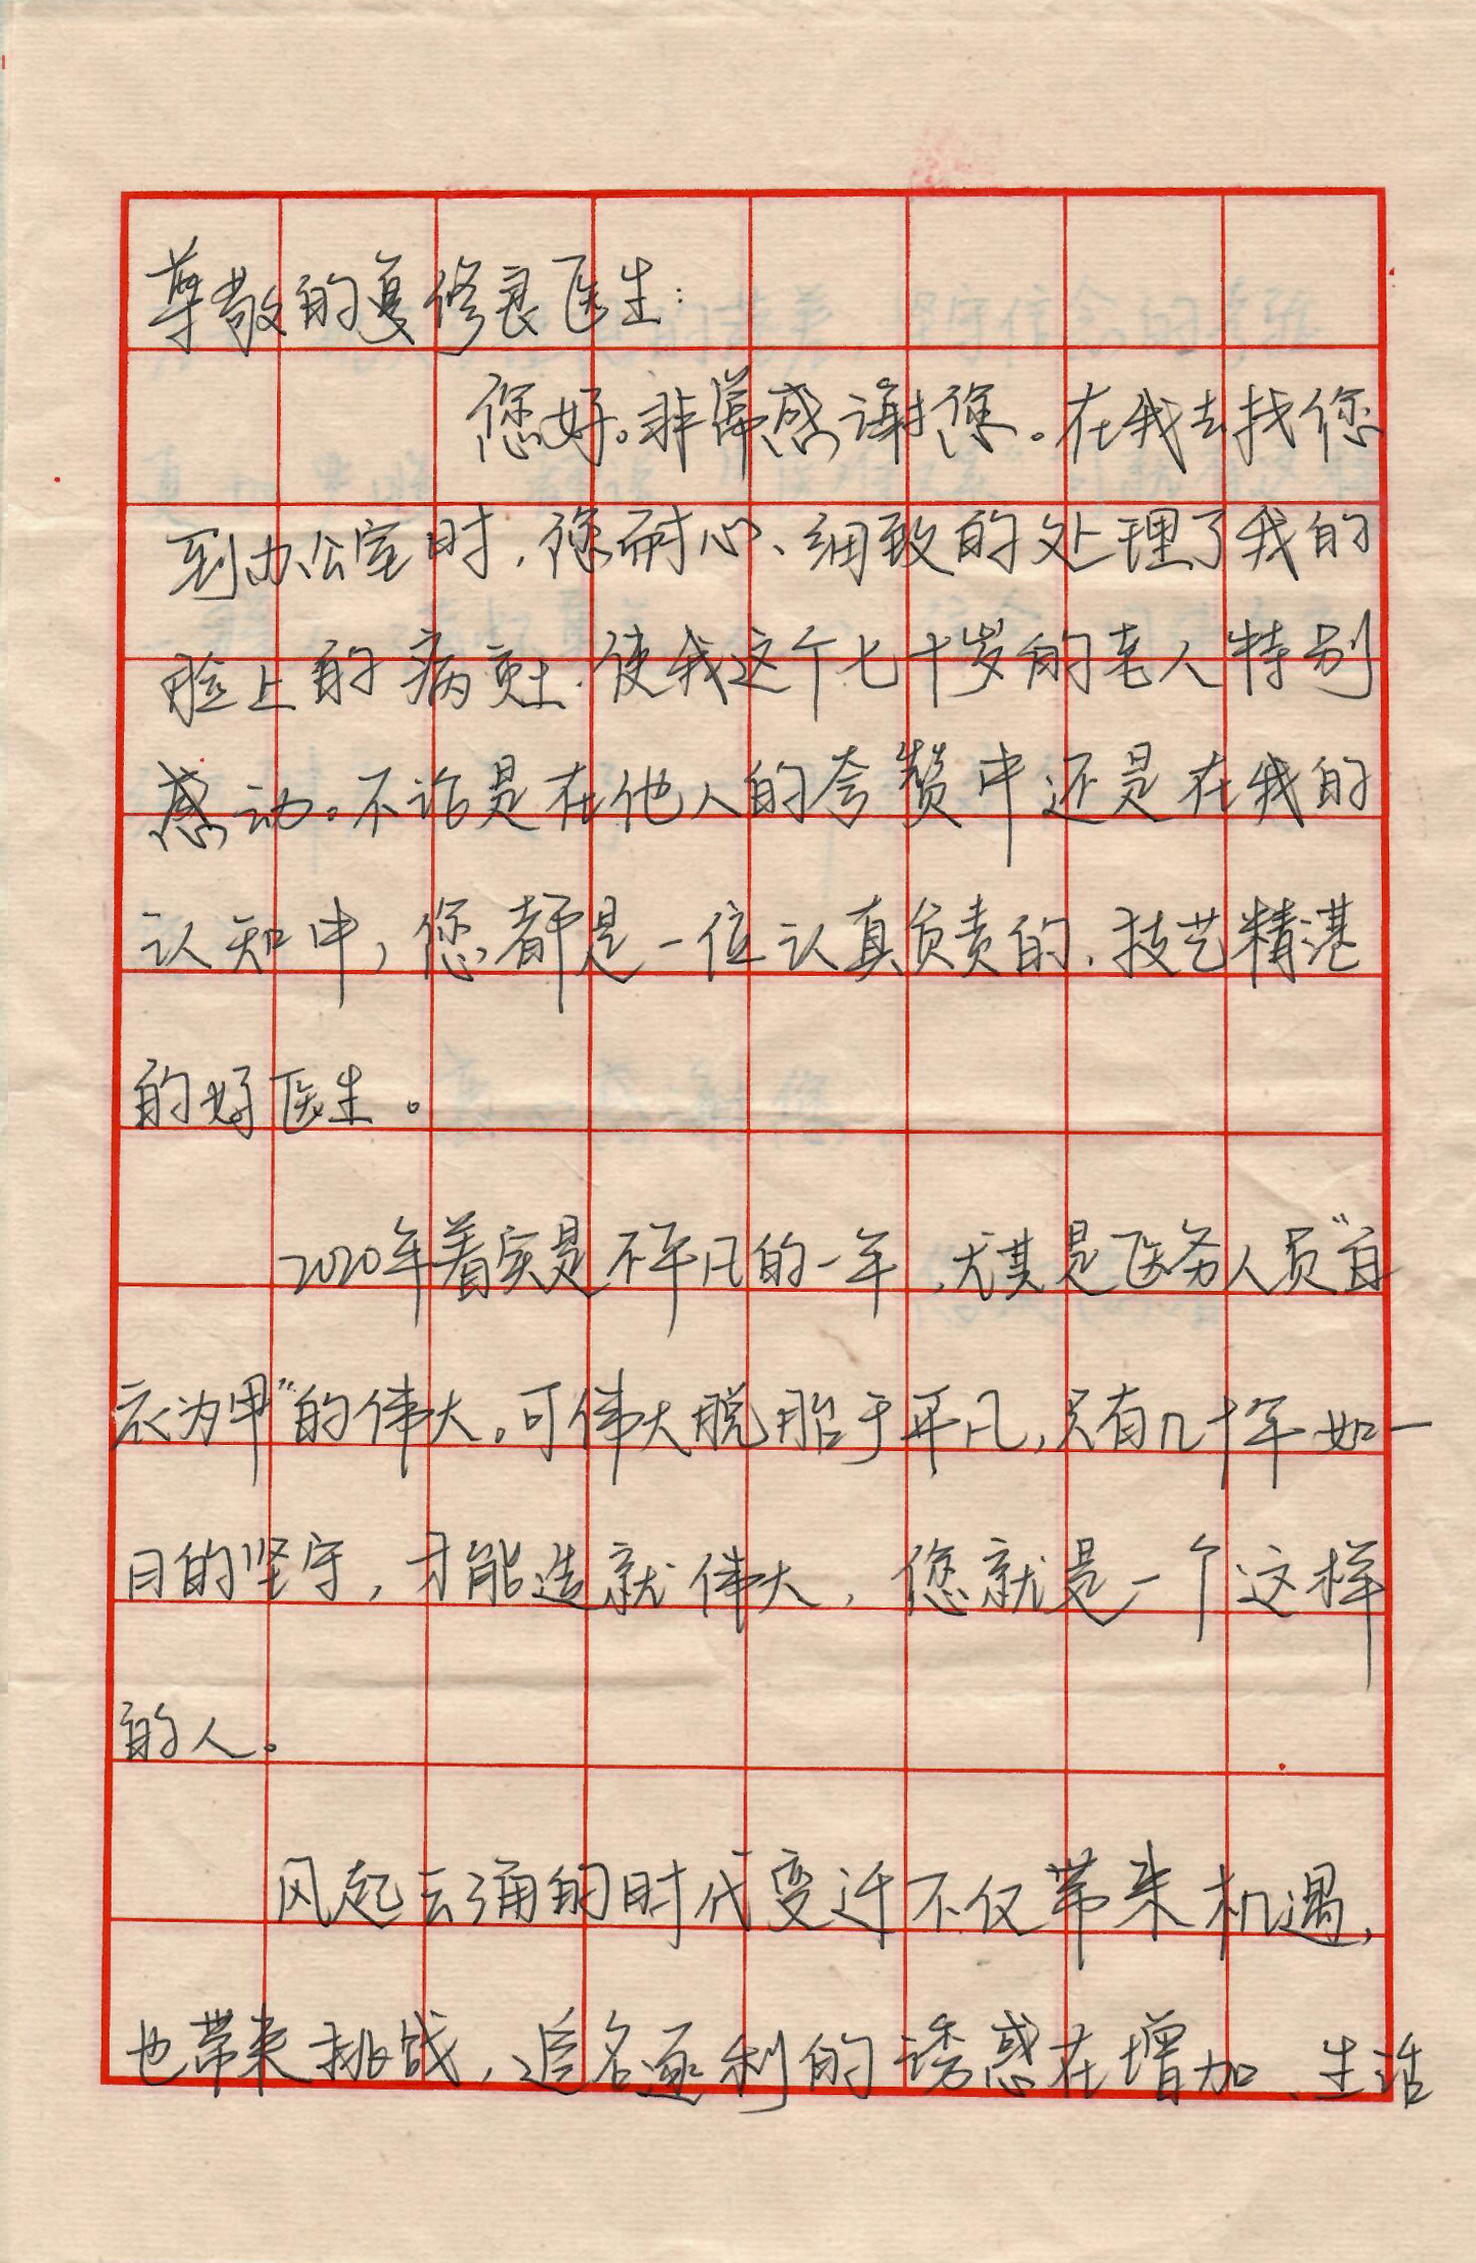 尊敬的夏修良医生：
您好。非常感谢您。在我去找您
到办公室时，您耐心、细致的处理了我的
脸上的病灶．使我这个七十岁的老人特别
感动。不论是在他人的夸赞中还是在我的
认知中，您都是一位认真负责的、技艺精湛
的好医生。
2020年着实是不平凡的一年，尤其是医务人员“白
衣为甲”的伟大。可伟大脱胎于平凡，只有几十年如一
日的坚守，才能造就伟大，您就是一个这样
的人。
风起云涌的时代变迁不仅带来机遇，
也带来挑战，追名逐利的诱惑在增加、生活